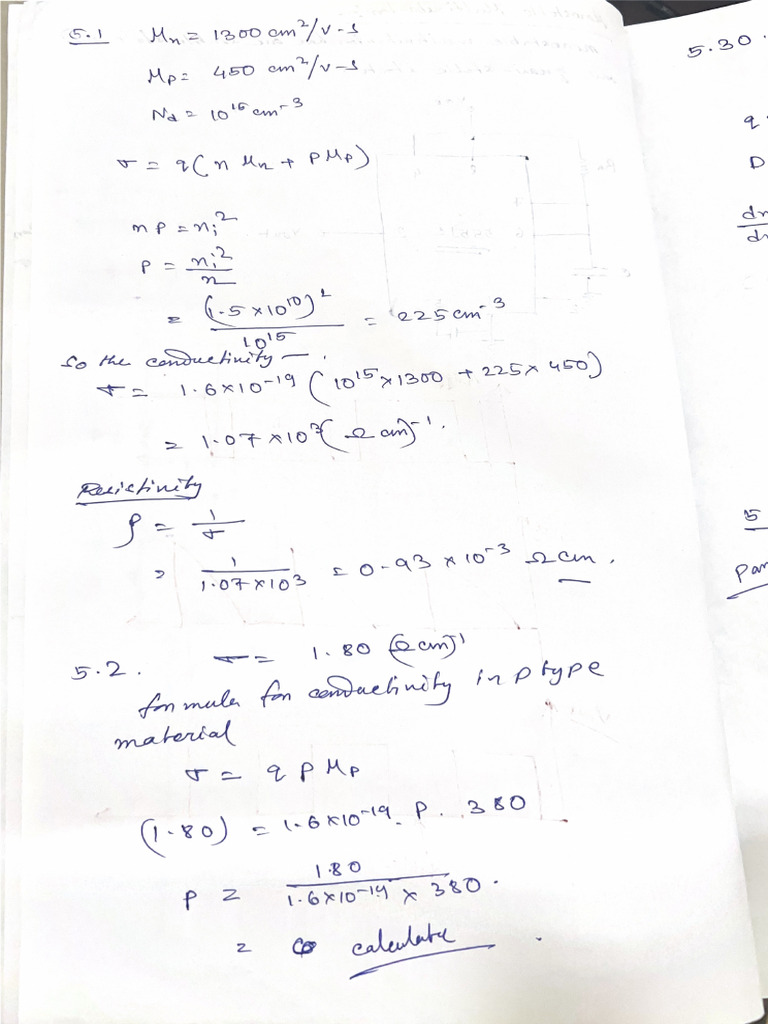 5.1 Mn = 1300 cm²/v-s
Mp = 450 cm²/v-s
Nd = 10¹⁵ cm⁻³
σ = q(n Mn + p Mp)
n p = ni²
p = ni²/n
= (1.5 × 10¹⁰)²/10¹⁵ = 225 cm⁻³
So the conductivity —
σ = 1.6×10⁻¹⁹ (10¹⁵ × 1300 + 225 × 450)
= 1.07 × 10³ (Ω cm)⁻¹.
Resistivity
ρ = 1/σ
= 1/1.07×10³ = 0.93 × 10⁻³ Ω cm.
5.2. σ = 1.80 (Ω cm)⁻¹
formula for conductivity in p type
material
σ = q p Mp
(1.80) = 1.6×10⁻¹⁹. p. 380
p = 1.80/1.6×10⁻¹⁹ × 380.
= calculate.
5.30.
q
D
5